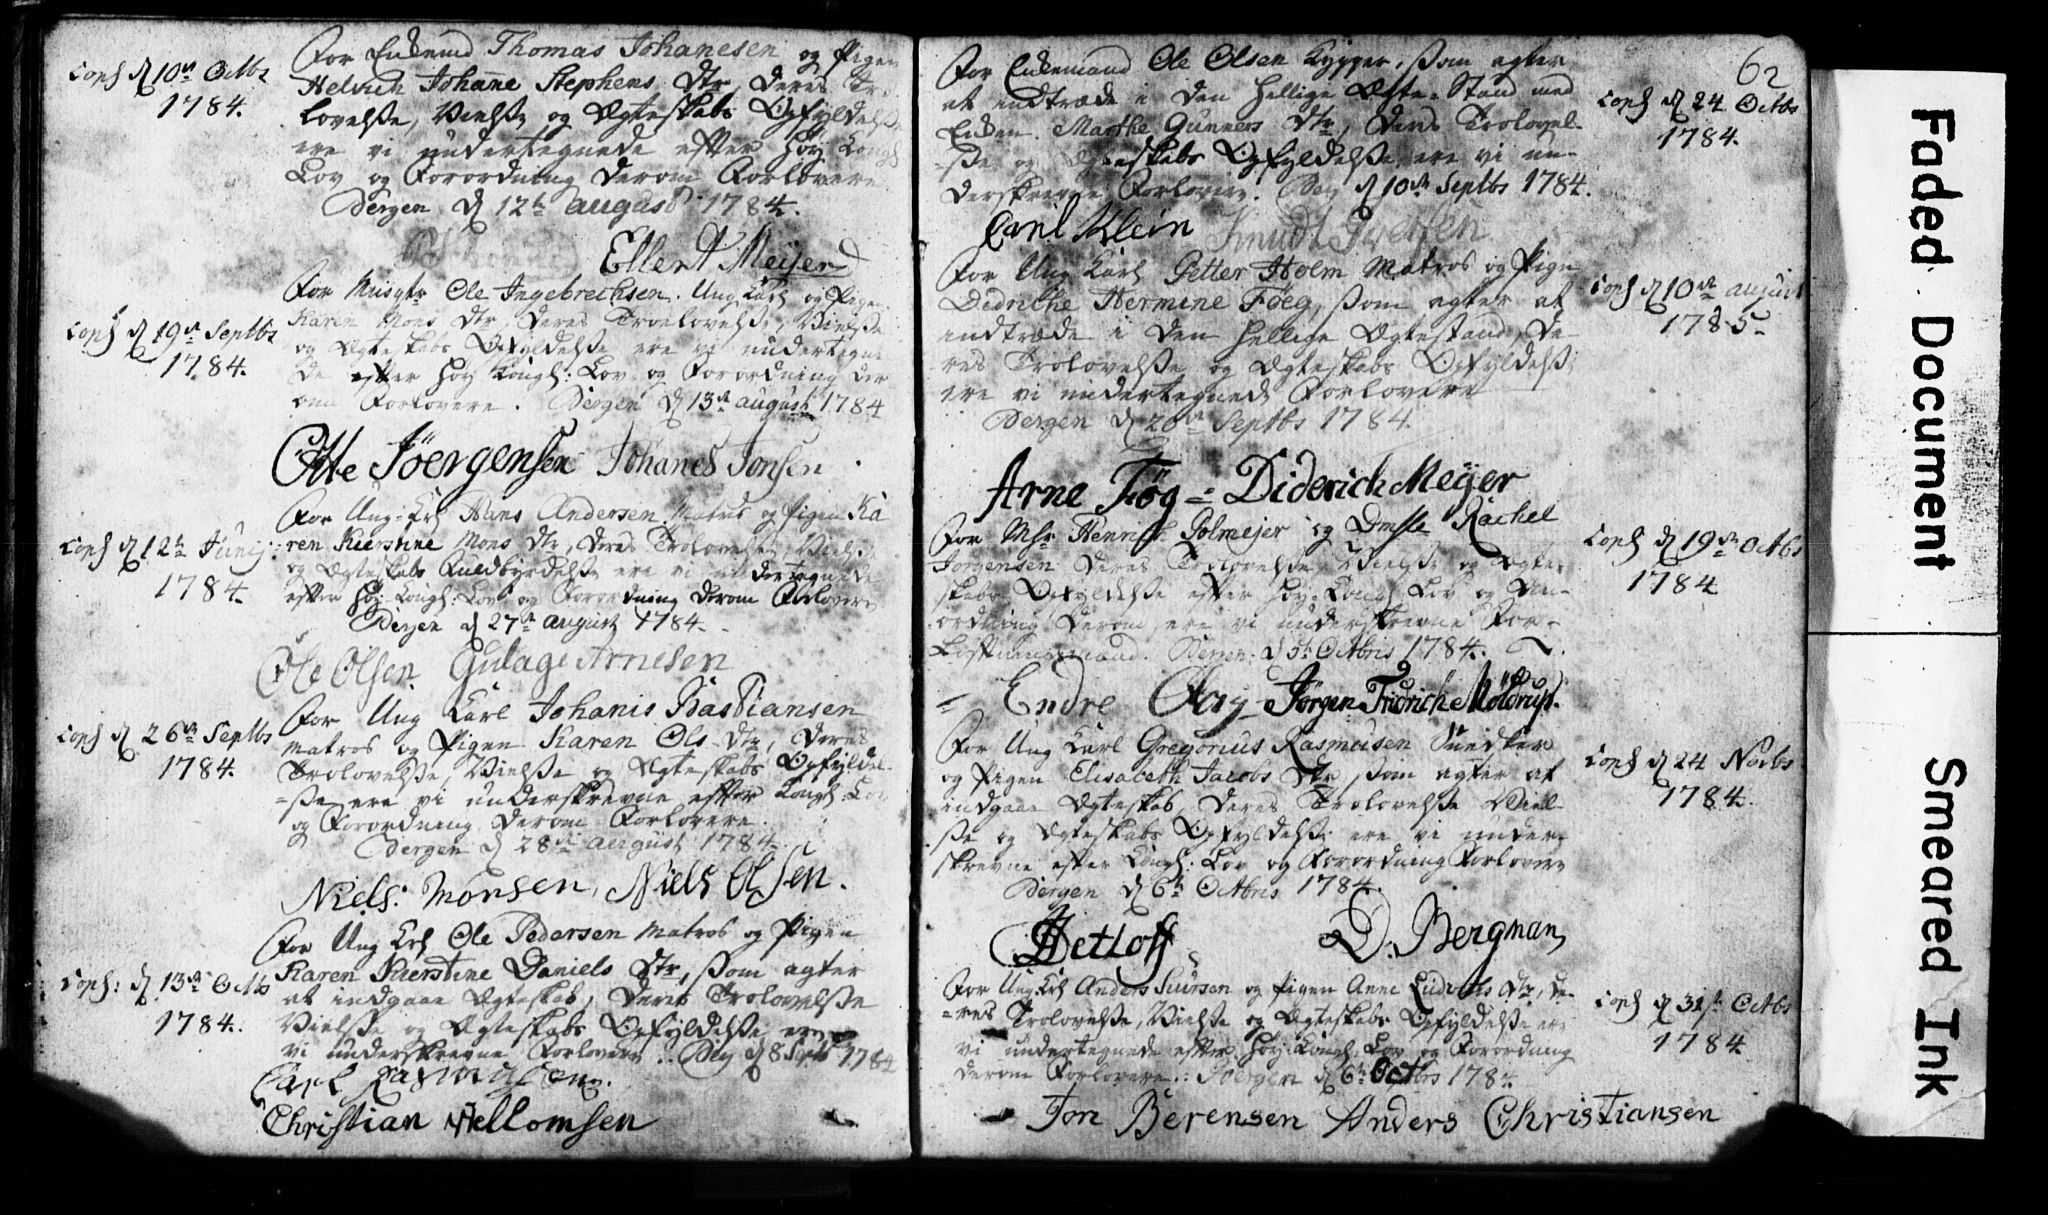 Coph d 10de Octbs
1784.
For Enkemd Thomas Johanesen og Pigen
Helvich Johane Stephens Dtr, Deres Tro-
lovelsse, Vielsse og Ægteskabs Opfyldelsse
ere vi undertegnede efter Høy Kongl
Lov og Forordning derom Forlovere
Bergen d 12te august 1784.
Ellert Meijer
Coph d 19de Septbs
1784.
For Musqtr Ole Ingebrechtsen. Ung Karl og Pigen
Karen Mons Dtr, Deres Troelovelsse, Vielsse
og Ægteskabs Opfyldelsse ere vi undertegne
de efter Høy Kongl: Lov og Forordning der
om Forlovere. Bergen d 13de august 1784
Otte Jöergensen Johanes Jonsen
Coph d 12te Junij
1784.
For Ung-Krl Hans Andersen Matros og Pigen Ka
ren Kierstine Mons Dtr, Deres Trolovelsse, Vielsse
og Ægteskabs Fuldbyrdelsse ere vi undertegnede
efter Høy-Kongl: Lov og Forordning derom Forlovere
Bergen d 27de august 1784.
Ole Olsen. Gulage Arnesen
Coph d 26de Septbs
1784.
For Ung Karl Johanis Bastiansen
Matros og Pigen Karen Ols Dtr, Deres
Trolovelsse, Vielsse og Ægteskabs Opfyldel-
-sse ere vi underskrevne efter Kongl: Lov
og Forordning derom Forlovere.
Bergen d 28de august 1784
Niels: Monsen, Niels Olsen.
Coph: d 13de Octb
1784.
For Ung Krl Ole Pedersen Matros og Pigen
Karen Kierstine Daniels Dtr, som agter
at indgaae Ægteskab, Deres Trolovelsse
Vielsse og Ægteskabs Opfyldelsse ere
vi underskrevne Forlovere. Berg d 8 Septb 1784
Carl Rasmussen.
Christian Hellomsen
62
For Enkemand Ole Olsen Kypper, som agter
at indtræde i den hellige Ægte-Stand med
Enken Marthe Gunners Dtr, Deres Trolovel-
-sse og Ægteskabs Opfyldelsse ere vi un-
derskrevne Forlovere. Berg d 10de Septbs 1784.
Carl Klein Knudt Iversen
Coph d 24 Octbs
1784.
For Ung Karl Petter Holm Matros og Pige
Didrikke Hermine Föeg, som agter at
indtræde i den hellige Ægtestand, De
res Trolovelsse og Ægteskabs Opfyldelsse
ere vi undertegnede Forlovere
Bergen d 20de Septbs 1784.
Coph d 10de august
1785
Arne Fög = Diderich Meijer
For Mhr Henrich Polmeijer og Dmslle Rachel
Jorgensen Deres Trolovelsse, Vielsse og Ægte-
skabs Opfyldelsse efter Høy-Kongl Lov og An-
ordning derom, ere vi underskrevne For-
Løftningsmænd. Bergen: d 5te Octbris 1784.
Endre Jörgen Fridrich Möldrup.
Coph d 19de Octbs
1784
For Ung Karl Gregorius Rasmusen Snedker
og Pigen Elisabeth Jacobs Dtr som agter at
indgaae Ægteskab, Deres Trolovelsse Viel-
sse og Ægteskabs Opfyldelsse ere vi under-
skrevne efter Kongl: Lov og Forordning Forlovere
Bergen d 6te Octbris 1784.
Detloff D. Bergman
Coph d 24 Novbs
1784.
For Ung Krl Anders Siursen og Pigen Anne Ludvigs Dtr, De-
-res Trolovelsse, Vielsse og Ægteskabs Opfyldelsse ere
vi undertegnede efter Høy-Kongl Lov og Forordning
derom Forlovere. Bergen d 6te Octbrs 1784
Jon Berensen Anders Christiansen
Coph d 31st Octbs
1784
Faded Document
Smeared Ink